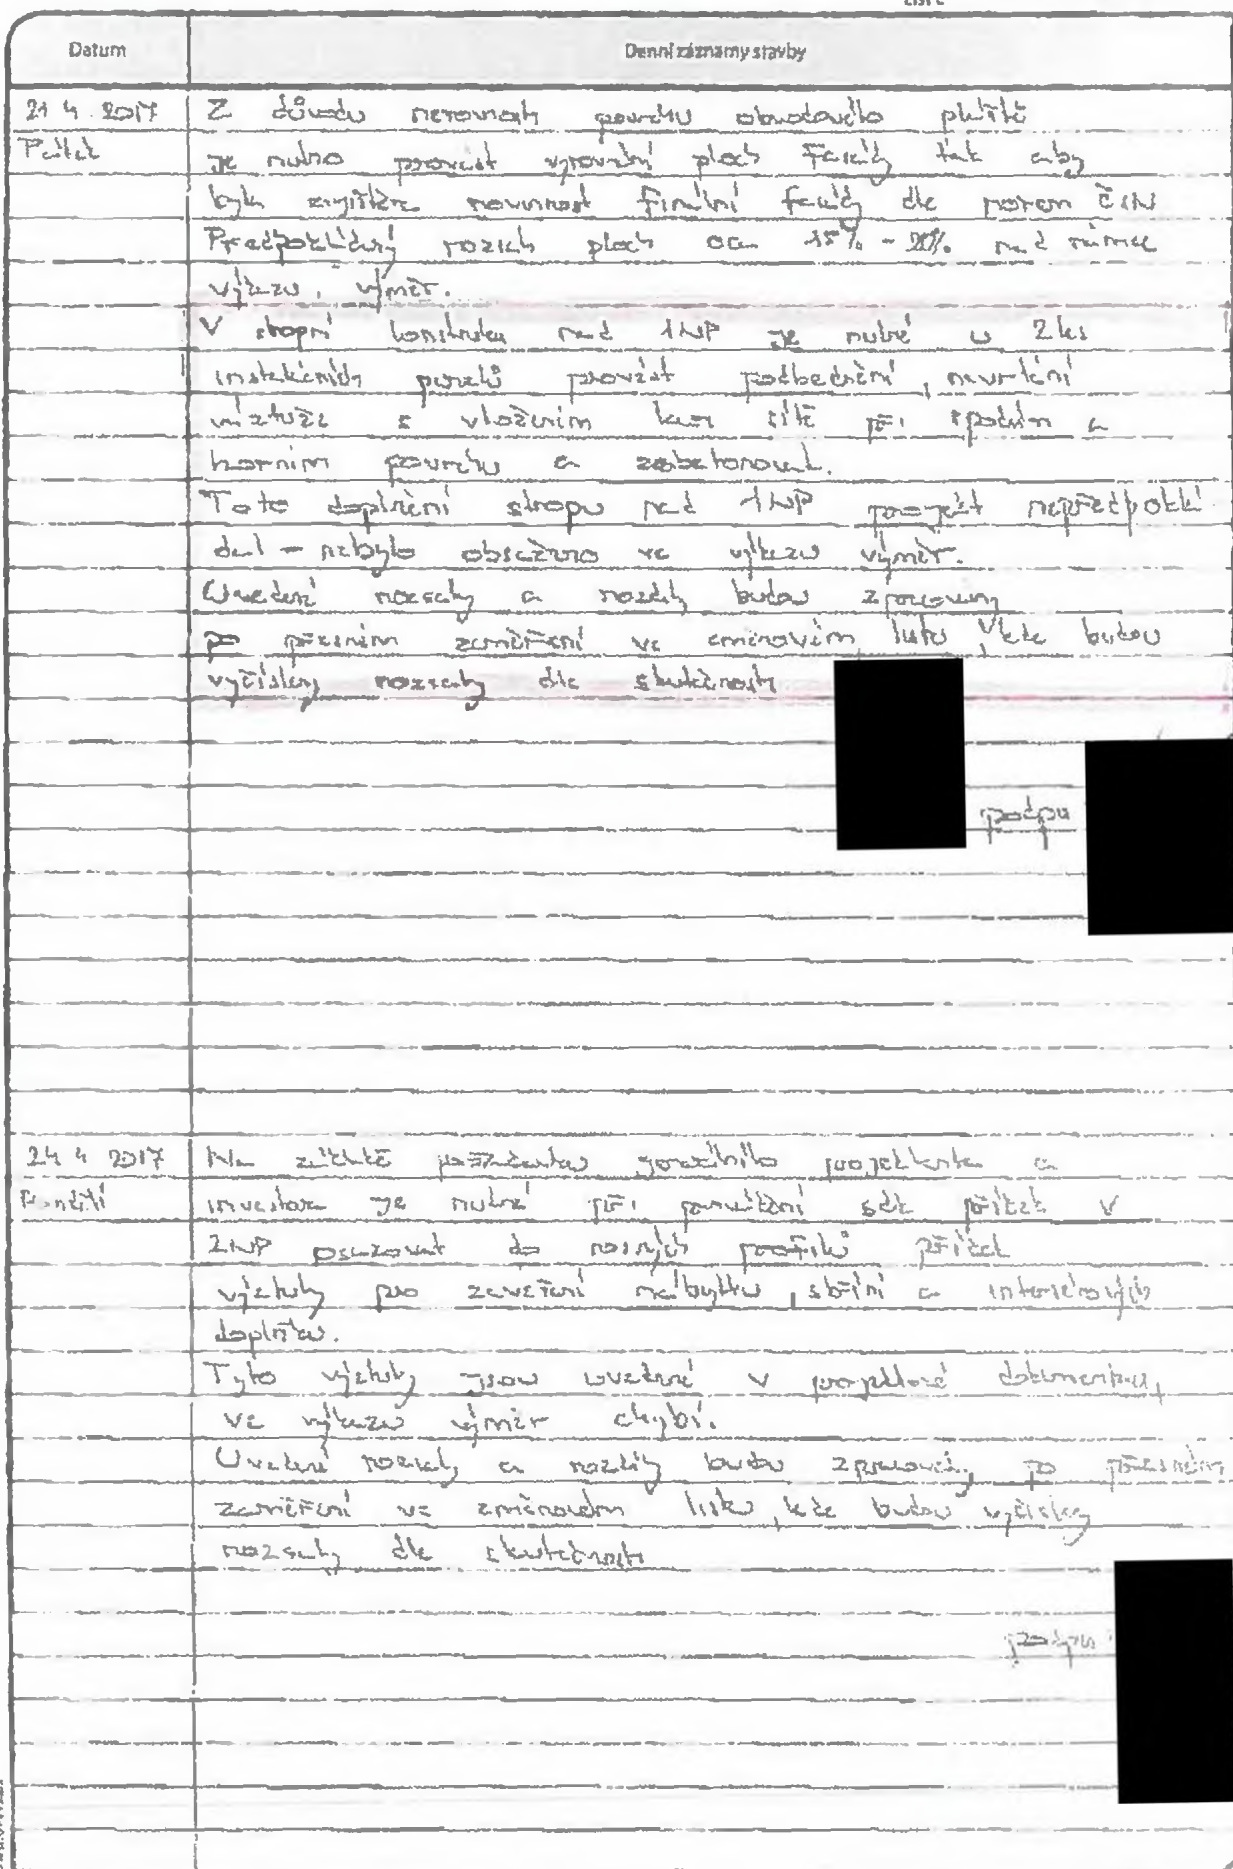 Datum
Denní záznamy stavby
21 4. 2017
Z důvodu nerovnosti povrchu obvodového pláště
Pátek
je nutno provést vyrovnání ploch fasády tak aby
byla zajištěna rovinnost finální fasády dle norem ČSN
Předpokládaný rozsah ploch cca 15% - 20% nad rámec
výkazu výměr.
V stropní konstrukci nad 1NP je nutné u 2ks
instalačních provést podbednění, navrtání
výztuže s vložením kari sítě při spodním a
horním povrchu a zabetonovat.
Toto doplnění stropu nad 1NP projekt nepředpoklá
dal - nebylo obsaženo ve výkazu výměr.
Uvedené rozsahy a rozdíly budou zpracovány
po přesném zaměření ve změnovém listu, kde budou
vyčísleny rozsahy dle skutečnosti
podpis
24 4 2017
Na základě požadavku generálního projektanta a
Pondělí
investora je nutné při provádění sdk příček v
2NP osazovat do nosných profilů příček
výztuhy pro zavěšení nábytku, skříní a interiérových
doplňků.
Tyto výztuhy jsou uvedené v projektové dokumentaci,
ve výkazu výměr chybí.
Uvedené rozsahy a rozdíly budou zpracovány po přesném
zaměření ve změnovém listu, kde budou vyčísleny
rozsahy dle skutečnosti
podpis